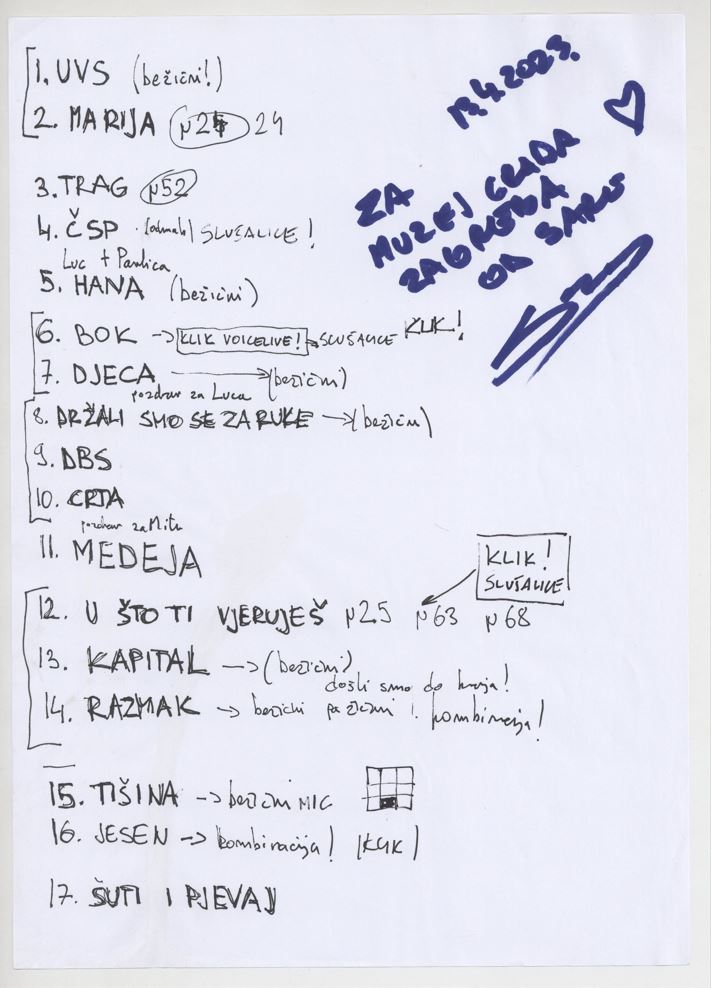 1. UVS (bežični!)
2. MARIJA µ24 24
3. TRAG µ52
4. ČSP (odmah) SLUŠALICE!
Luc + Pavlica
5. HANA (bežični)
6. BOK → KLIK VOICELIVE! → SLUŠALICE KLIK!
7. DJECA → (bežični)
pozdrav za Luca
8. DRŽALI SMO SE ZA RUKE → (bežični)
9. DBS
10. CRTA
pozdrav za
11. MEDEJA
KLIK!
SLUŠALICE
12. U ŠTO TI VJERUJEŠ µ25 µ63 µ68
13. KAPITAL → (bežični)
došli smo do kraja!
14. RAZMAK → bežični pa žični i. kombinacija!
15. TIŠINA → bežični MIC
16. JESEN → kombinacija! (KLIK)
17. ŠUTI I PJEVAJ
4.2023.
ZA
MUZEJ GRADA
ZAGREBA
OD SARE